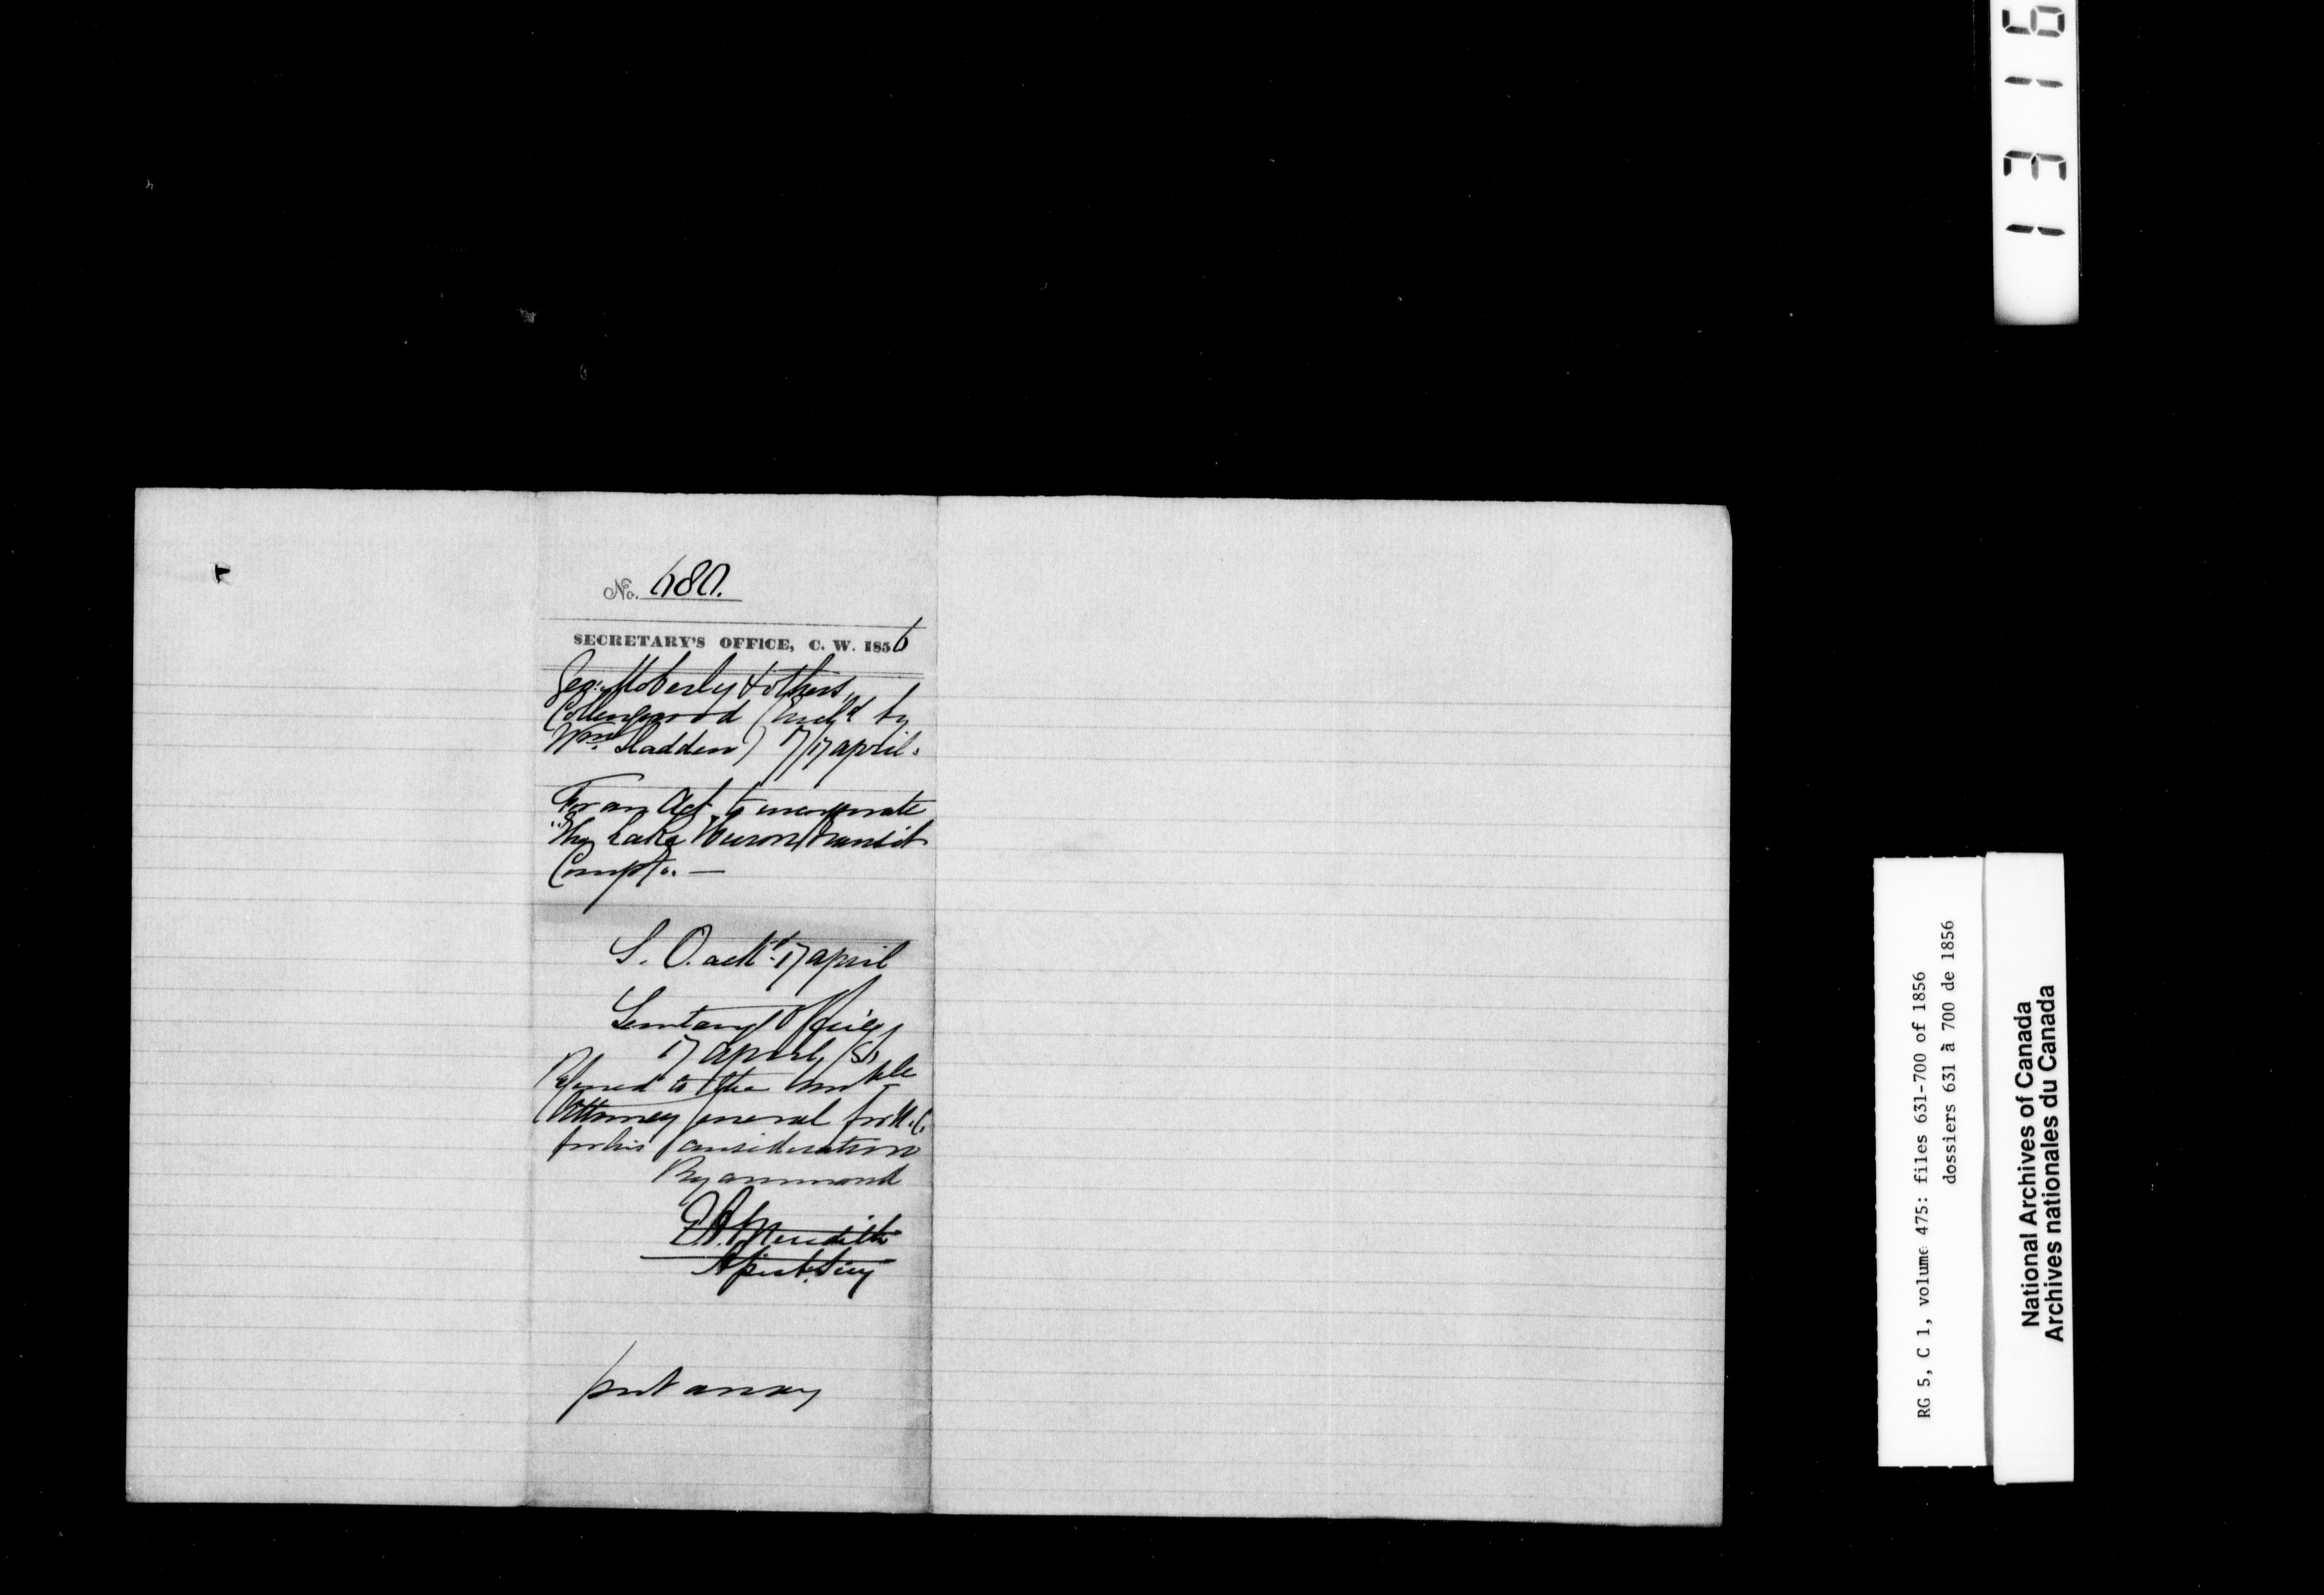 1316
No. 680.
SECRETARY'S OFFICE, C. W. 1856
Geo: Moberly & others,
Collingwood (Encl'd by
Wm. Madden) 17/17 april.
For an Act to incorporate
"The Lake Huron Transit
Compy." —
S. O. ack'd. 17 april
Secretary's Office,
17 April, 56
Referred to the Honble
Attorney General for U.C.
for his consideration
By command
E. A. Meredith
Assist. Secy
put away
RG 5, C 1, volume 475: files 631-700 of 1856
dossiers 631 à 700 de 1856
National Archives of Canada
Archives nationales du Canada